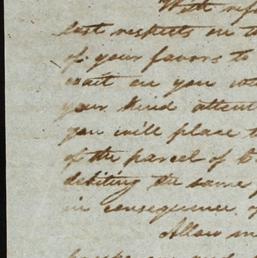 With refe
last respects on t
of your favors to
wait on you wi
your kind attent
you will place t
of the parcel of
debiting the same
in consequence of
Allow m